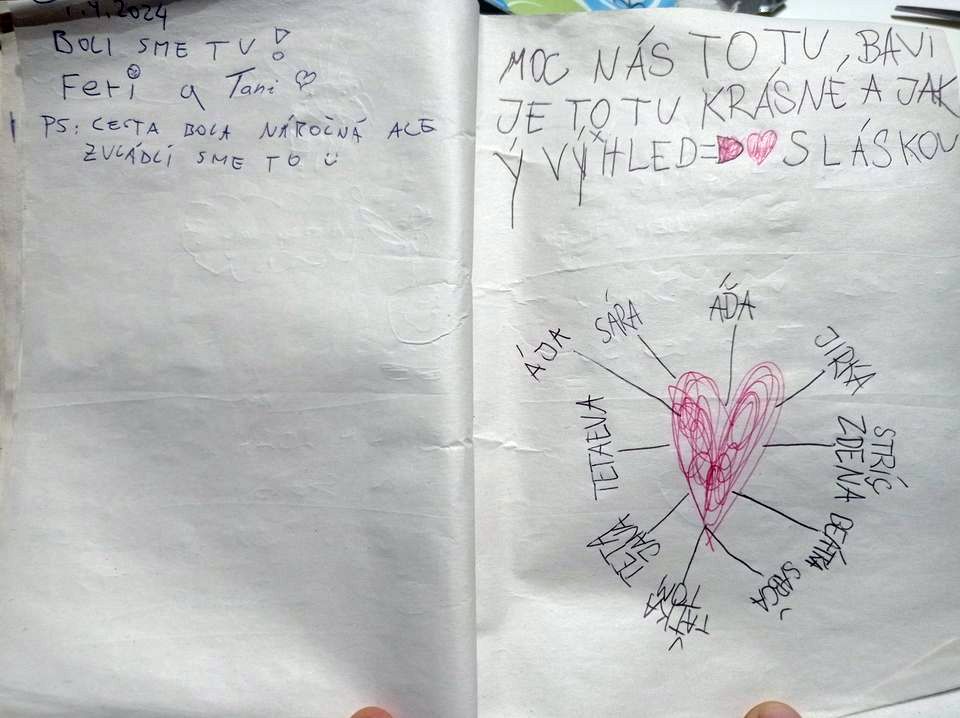 1.4.2024
BOLI SME TU!
Feri a Tani
PS: CESTA BOLA NÁROČNÁ ALE
ZVLÁDLI SME TO
MOC NÁS TO TU BAVI
JE TO TU KRÁSNÉ A JAK
Ý VÝHLED= S LÁSKOU
ÁĎA
SÁRA
ÁJA
JIRKA
TETAEVA
STRÍC
ZDENA
TETA
TAŤKA
TOM